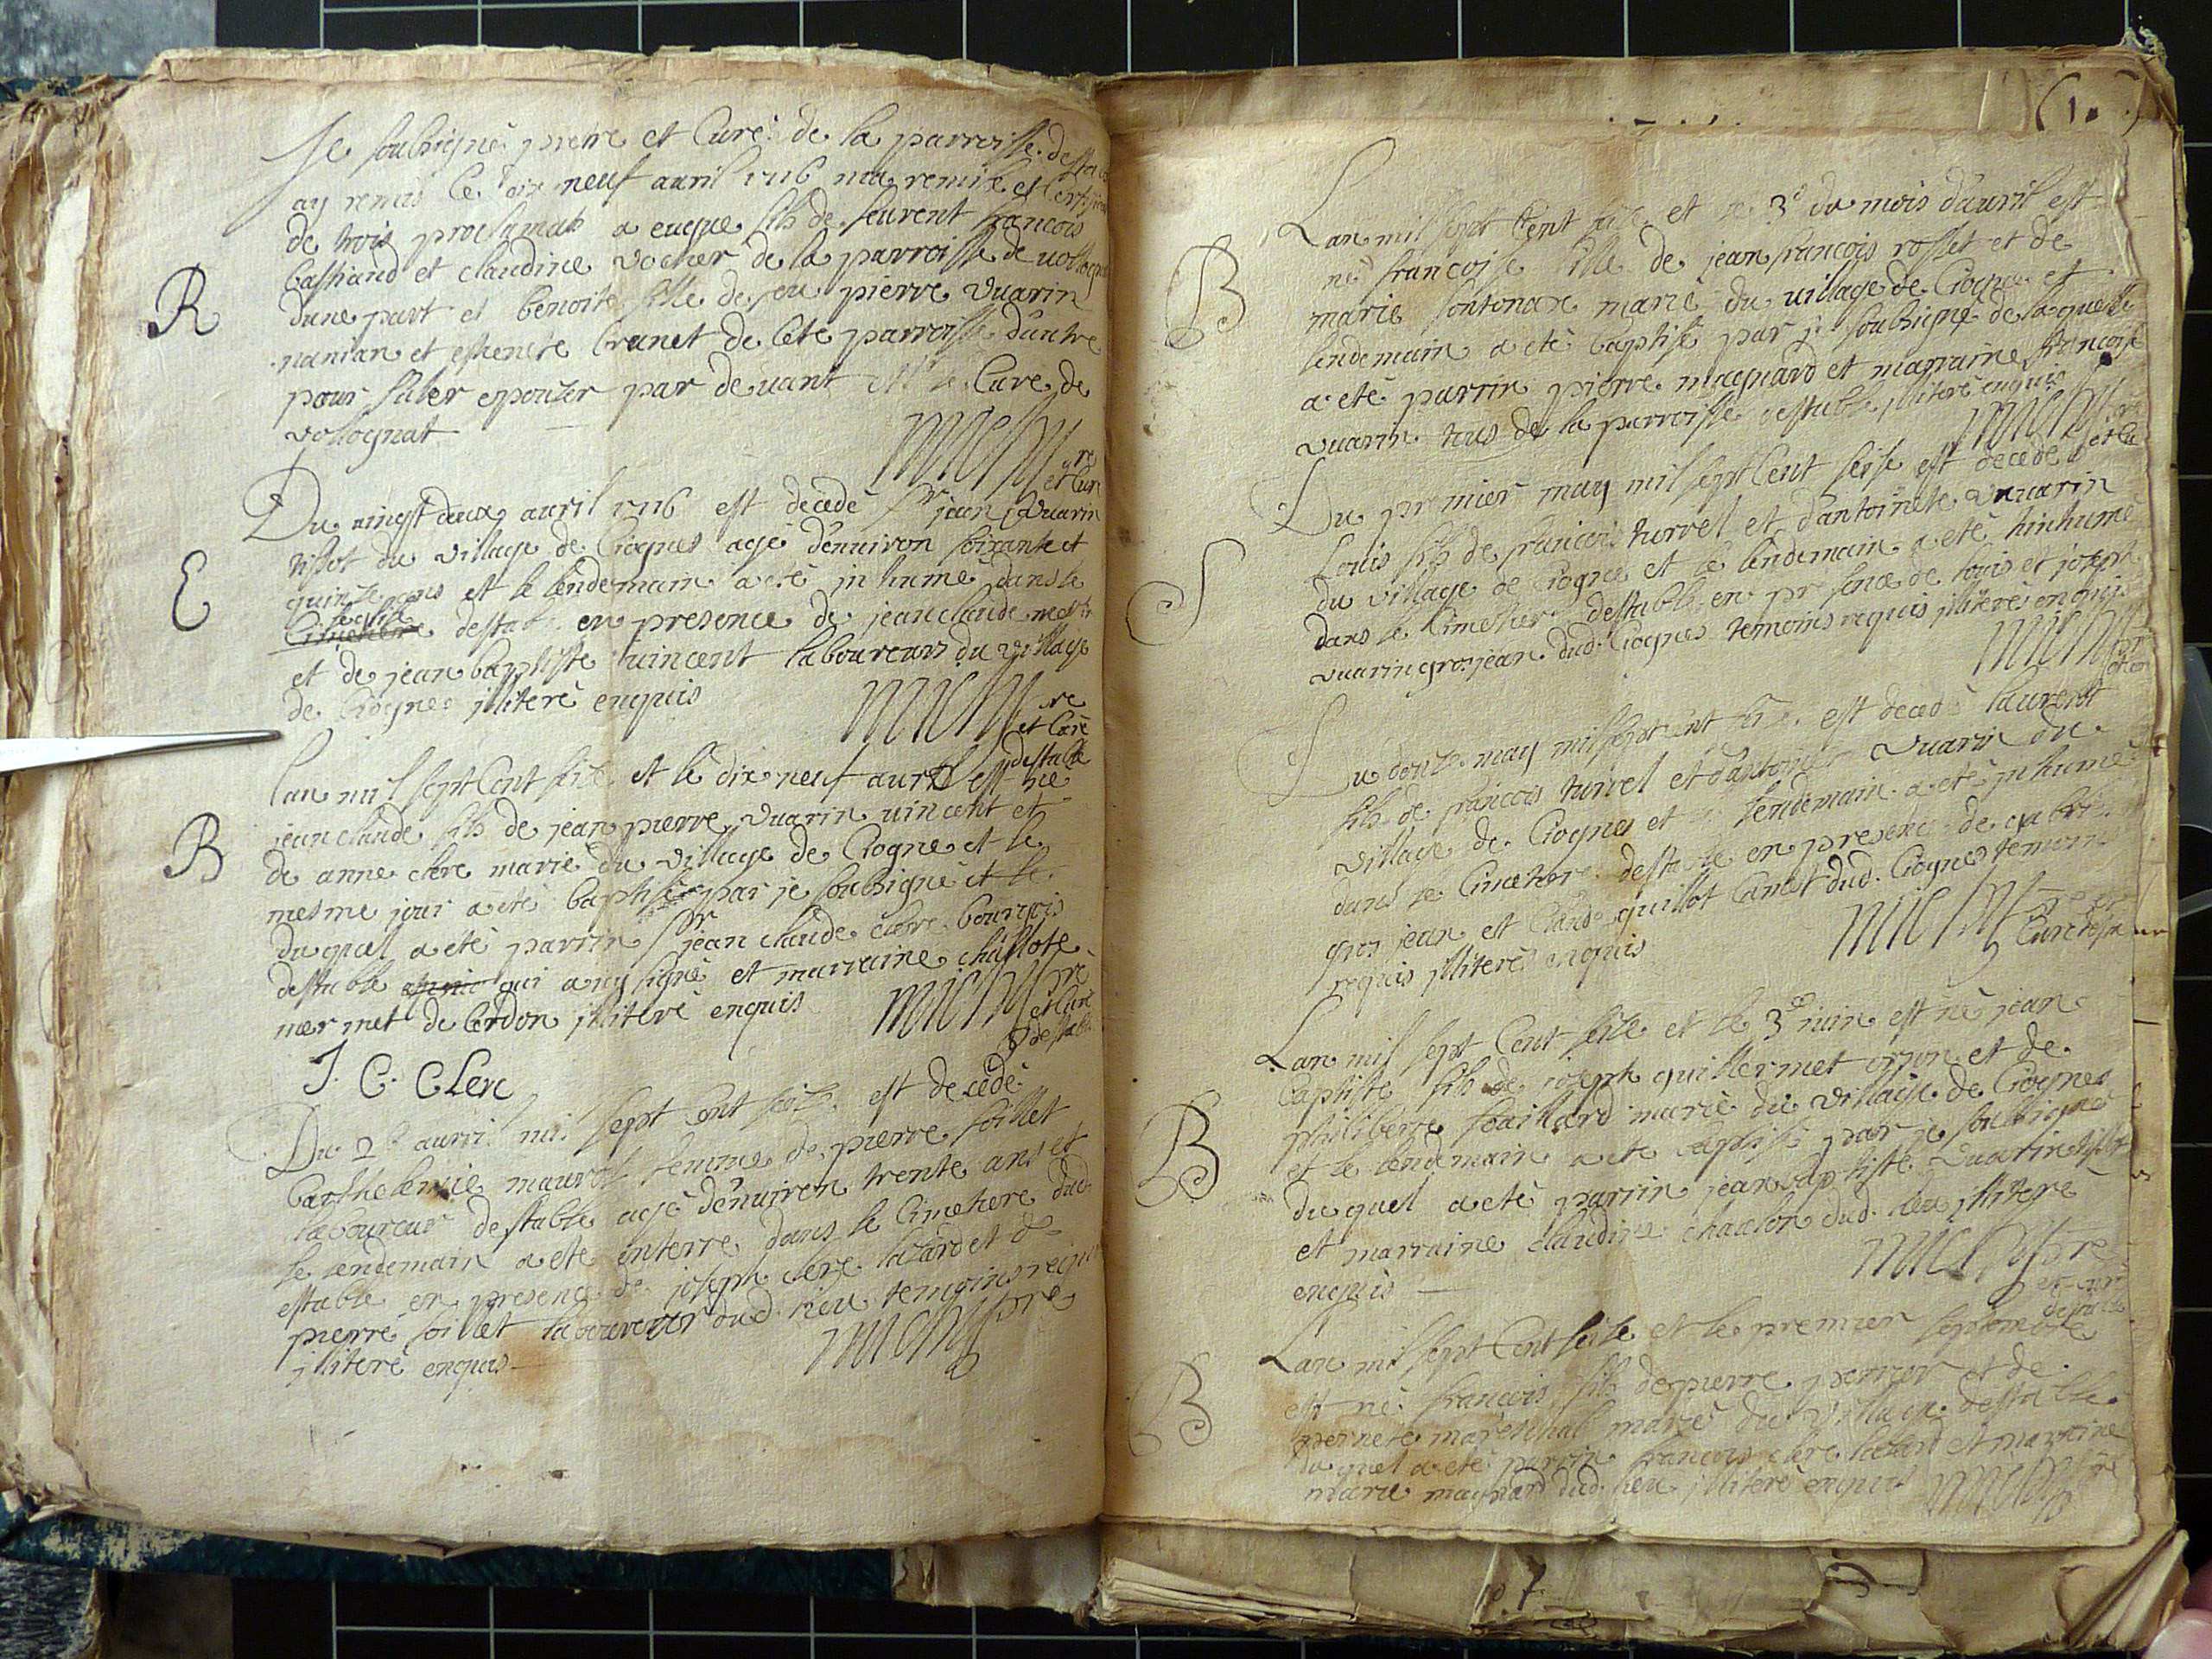 Je soubsigné pretre et Curé de la parroisse destable
ay remis le dix neuf auril 1716 ma remise et
de trois proclamats a eugne fils de laurent francois
Castiand et claudine vocher de la parroisse de uolognat
R
dune part et benoite fille de feu pierre Vuarin
nanian et Cranet de cete parroisse dautre
pour saler epouser par deuant Mr le Cure de
volognat
Michel pre
et Cure
Du uingt deux auril 1716 est decedé sr jean Vuarin
tissot du village de Ciognes agé denuiron soixante et
E
quinze ans et le lendemain a eté inhumé dans le
leglise
Cimetiere destable en presence de jean claude
et de jean baptiste uincent laboureurs du village
de Ciognes illiteré enquis
Michel pre
et Curé
destable
Lan mil sept Cent seize et le dix neuf auril est né
B
jean claude fils de jean pierre Vuarin uincent et
de anne clere marié du village de Ciogne et le
mesme jour a eté baptisé par je soubsigné et le
duquel a eté parrin sr jean claude clere bourgois
destable qui a icy signé et marraine charlote
mermet de Cerdon illiteré enquis
Michel pre
et Curé
destable
J. C. CLerc
Du 2e auril mil sept cent seize est decedé
Barthelemie femme de pierre soillet
laboureur destable agé denuiron trente ans et
le lendemain a eté enterre dans le Cimetiere dud.
estable en presence de joseph clere lazard et de
pierre soillet laboureur dud. lieu temoins requis
illiteré enquis
Michel pre
Lan mil sept Cent seize et le 3e du mois dauril est
B
né francoise fille de jean francois rosset et de
marie sontonax marié du uillage de Ciogne et
lendemain a eté baptisé par je soubsigné de laquelle
a eté parrin pierre maynard et marraine francoise
Vuarin tous de la parroisse destable illiteré enquis
Michel pre
et Cu
Du premier may mil sept Cent seise est decedé
S
Louis fils de francois turrel et dantoinete Vuarin
du village de Ciogne et le lendemain a eté hinhumé
dans le Cimetier destable en presence de louis et joseph
Vuarin gros jean dud. Ciognes temoins requis illiteré enquis
Michel pr
Du douze may mil sept cent seize est decedé laurent
fils de francois turrel et dantoinete Vuarin du
village de Ciognes et le lendemain a eté inhumé
dans le Cimetiere destable en presence de
gros jean et Claude guillot Canet dud. Ciognes temoins
requis illiteré enquis
Michel pre et
Curé destable
Lan mil sept Cent seize et le 3e juin est né jean
baptiste fils de joseph guillermet et de
B
philiberte marié du village de Ciognes
et le lendemain a eté baptisé par je soubsigné
duquel a eté parrin jean baptiste Vuarin tissot
et marraine claudine chaalon dud. lieu illiteré
enquis
Michel pre
et curé
destable
Lan mil sept Cent seize et le premier septembre
B
est né francois fils de pierre et de
pernete mareschal marié du village destable
duquel a eté parrin francois clere lazard et marraine
marie maynard dud. lieu illiteré enquis
Michel pre